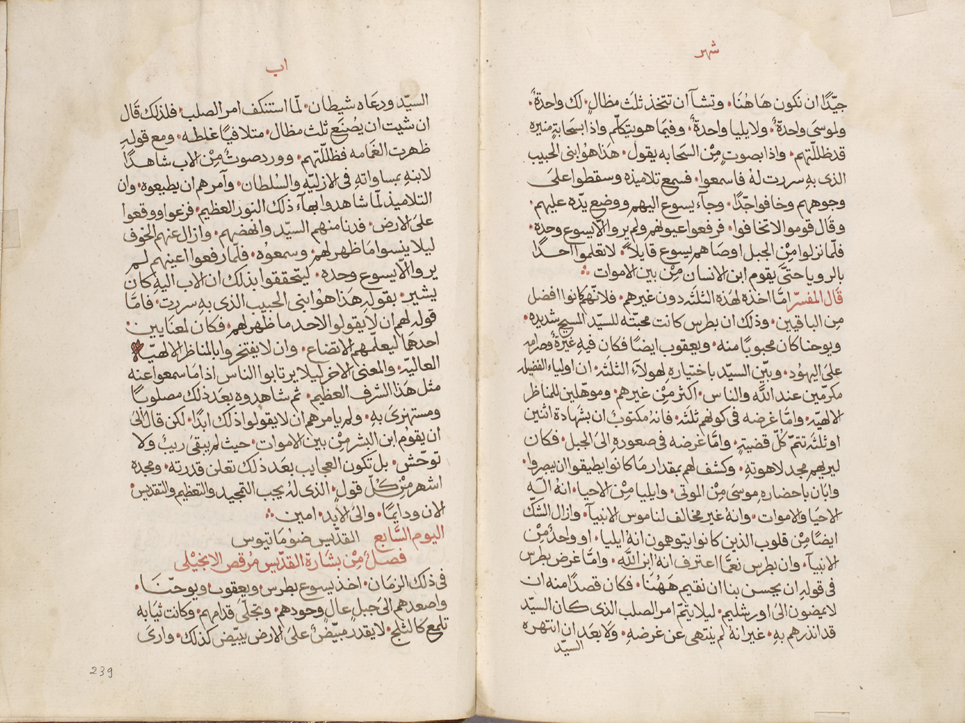 شهر
جيّدًا ان نكون هاهُنا۰ وتشآ ان نتخذ ثلث مظال۰ لك واحدةً۰
ولموسى واحدةً۰ ولايليا واحدةً۰ وفيما هو يتكلّم واذا بسحابةٍ منيره
قد ظللتهم۰ واذا بصوتٍ مِن السحابه يقول۰ هَذا هُو ابنى الحبيب
الذى به سررت لهُ فاسمعوا۰ فسمع تلاميذه وسقطوا على
وجوههم وخافوا جدًا۰ وجآء يسوع اليهم ووضع يدَه عليهم۰
وقال قوموا لاتخافوا۰ فرفعوا عيونهم ولم يروا الايسوع وحدَه۰
فلما نزلوا مِن الجبل اوصاهم يسوع قايلاً۰ لاتعلموا احدًا
بالرويا حتّى يقوم ابن الانسان مِن بين الاموات
قال المفسّر امّا اخذه لهذه الثلثه دون غيرهم۰ فلانّهم كانوا افضل
من الباقيين۰ وذلك ان بطرس كانت محبّته للسيّد المسيح شديده۰
ويوحنا كان محبوبًا منه۰ ويعقوب ايضًا فكان فيهِ غيرةٌ
على اليهود۰ وبيّن السيّد باختياره لهولآء الثلثه۰ ان اولياء الفضل
مكرمين عند الله والناس۰ اكثر مِن غيرهم۰ وموهلين للمناظر
الالهيّه۰ وامّا غرضه فى كونهم ثلثه۰ فانهُ مكتوبٌ ان بشهادة اثنين
او ثلثه تتمّ كلّ قضيّه۰ وامّا غرضه فى صعوره الى الجبل۰ فكان
ليريهم مجد لاهوتهِ۰ وكشف لهم بمقدار مَا كانوا يطيقوا ان يبصروا۰
وابان باحضاره موسى مِن الموتى۰ وايليا مِن الاحيا۰ انهُ اله
الاحيا والاموات۰ وانهُ غير مخالف لناموس الانبيآ۰ وازال الشكّ
ايضًا مِن قلوب الذين كانوا يتوهمون انهُ ايليا۰ او واحدٌ مِن
الانبيآ۰ وان بطرس نعمَّا اعترف انهُ ابن الله۰ وامّا غرض بطرس
فى قولهِ ان يحسن بنا ان نقيم هَهُنا۰ فكان قصدًا منه ان
لايمضون الى اورشليم۰ ليلا يتمّ امر الصلب الذى كان السيّد
قد انذرهم به۰ غير انهُ لم ينتهى عن غرضهِ۰ ولا بعد ان انتهره
السيّد
اب
السيّد ودعَاه شيطان۰ لمّا استنكف امر الصلب۰ فلذلك قال
ان شيت ان يُصنَع ثلث مظال۰ متلافيًا غلطه۰ ومع قولهِ
ظهرت الغمامه فظللتهم۰ وورد صوتٌ مِنْ الاب شاهدًا
لابنهِ بمساواتهِ فى الازليّه والسُلطان۰ وآمرهم ان يطيعوه۰ وان
التلاميذ لمّا شاهدوا بهآء ذلك النور العظيم۰ فزعوا ووقعوا
على الارض۰ فدنا منهم السيّد وانهضهم۰ وازال عنهم الخوف
ليلا ينسوا مَا ظهر لهم وسمعوه۰ فلما رفعوا اعينهم لم
يروا الايسوع وحدَه۰ ليتحققوا بذلك ان الاب اليهِ كان
يشير۰ بقولهِ هَذا هُو ابنى الحبيب الذى به سررت۰ فامّا
قوله لهم ان لايقولوا لاحد مَا ظهر لهم۰ فكان لمعنايين۰
احدهما ليعلّمهم الاتضاع۰ وان لايفتخروا بالمناظر الالهيّه
العاليه۰ والمعنى الاخر ليلا يرتابوا الناس اذا مَا سمعوا عنه
مثل هَذا الشرف العظيم۰ ثم شاهدوه بعد ذلك مصلوبًا
ومستهزى بهِ۰ ولم يامرهم ان لايقولوا ذلك ابدًا۰ لكن قال الى
ان يقوم ابن البشر مِن بين الاموات۰ حيث لم يبقى ريبٌ ولا
توحّش۰ بل تكون العجايب بعد ذلك تعلن قدرته۰ ومجده
اشهر مِن كلّ قول۰ الذى لهُ يجب التمجيد والتعظيم والتقديس۰
الان ودايمًا۰ والى الابد۰ امين
اليوم السّابع القدّيس ضوماتيوس
فصلٌ مِنْ بشارة القدّيس مرقص الانجيلى
فى ذلك الزمان۰ اخذ يسوع بطرس ويعقوب ويوحنّا۰
واصعدهم الى جبل عالٍ وحودهم۰ وتجلّى قدامهم۰ وكانت ثيابه
تلمع كالثلج۰ لايقدر مبيّضٌ على الارض يبيّض كذلك۰ وارى
239